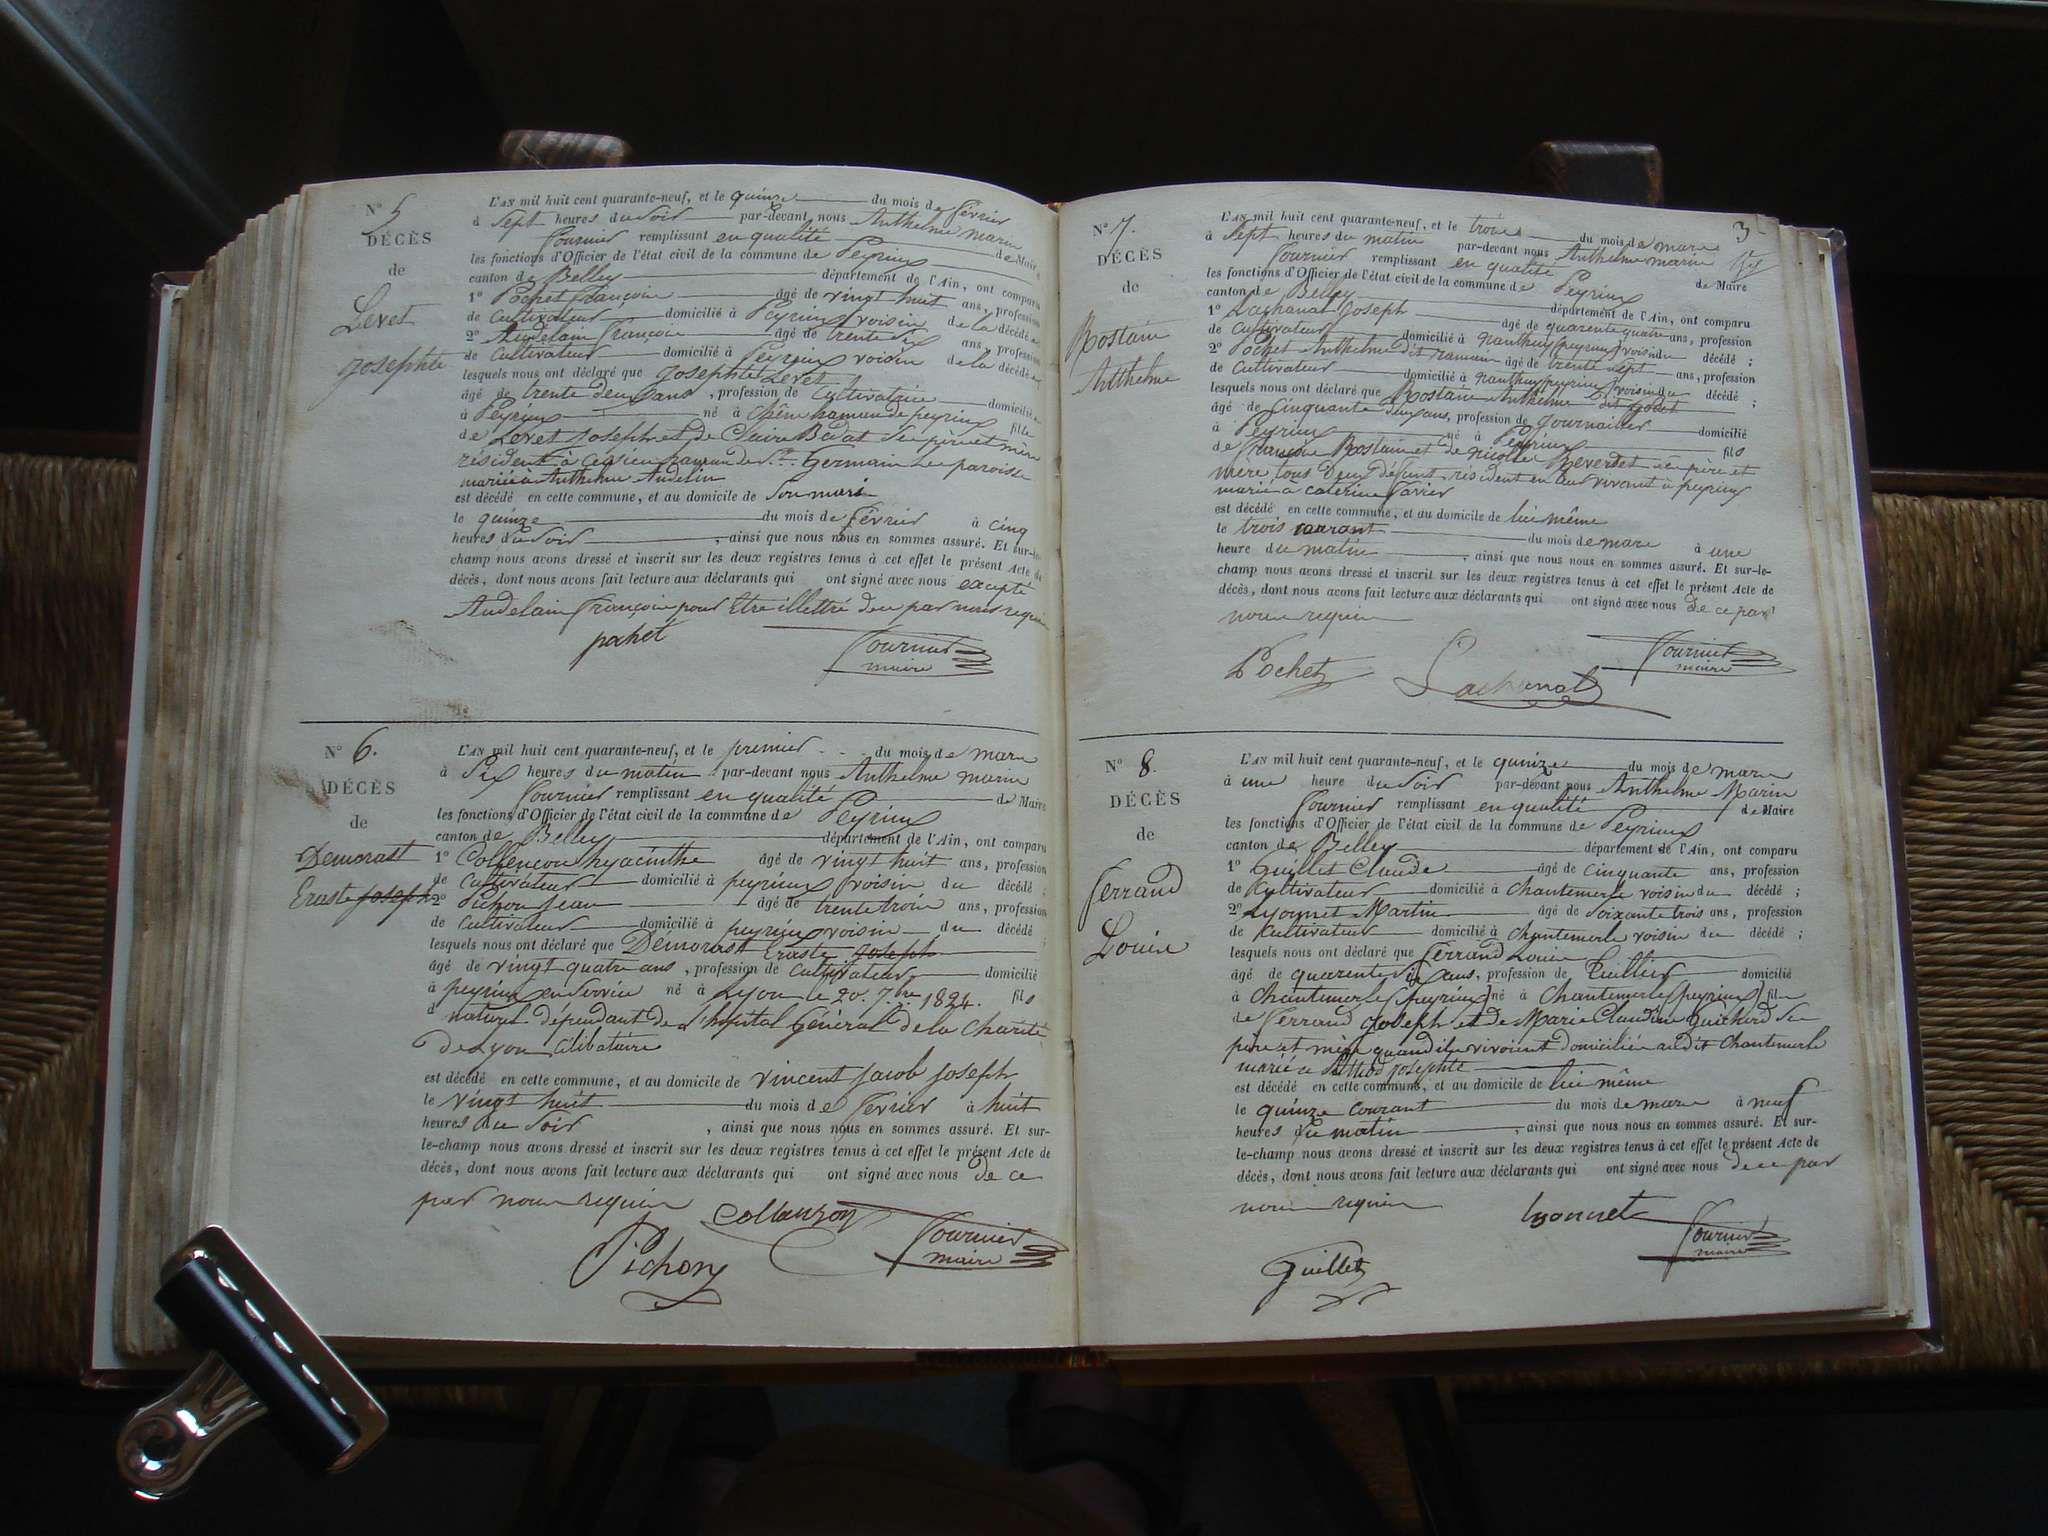 N° 5
DÉCÈS
de
Levet
Josephte
L'AN mil huit cent quarante-neuf, et le quinze du mois de février
à Sept heures du Soir par-devant nous Anthelme marin
Fournier remplissant en qualité de Maire
les fonctions d'Officier de l'état civil de la commune de Peyrieu
canton de Belley département de l'Ain, ont comparu
1° Pochet françois âgé de vingt huit ans, profession
de Cultivateur domicilié à Peyrieu voisin de la décédée
2° Audelain françois âgé de trente six ans, profession
de Cultivateur domicilié à Peyrieu voisin de la décédée
lesquels nous ont déclaré que Josephte Levet
âgé de trente deux ans, profession de Cultivatrice domicilié
à Peyrieu né à de peyrieu fille
de Levet Joseph et de Claire Badat Ses père et mère
résident à hameau de St Germain Les paroisse
mariée à Anthelme Audelin
est décédé en cette commune, et au domicile de Son mari
le quinze du mois de février à cinq
heures du Soir, ainsi que nous nous en sommes assuré. Et sur-le-
champ nous avons dressé et inscrit sur les deux registres tenus à cet effet le présent Acte de
décès, dont nous avons fait lecture aux déclarants qui ont signé avec nous excepté
Audelain françois pour Etre illettré de ce par nous requis
pochet Fournier
maire
N° 6.
DÉCÈS
de
Demorast
Eraste Joseph
L'AN mil huit cent quarante-neuf, et le premier du mois de mars
à Six heures du matin par-devant nous Anthelme marin
Fournier remplissant en qualité de Maire
les fonctions d'Officier de l'état civil de la commune de Peyrieu
canton de Belley département de l'Ain, ont comparu
1° Collençon hyacinthe âgé de vingt huit ans, profession
de Cultivateur domicilié à peyrieu voisin du décédé ;
2° Pichon Jean âgé de trente trois ans, profession
de Cultivateur domicilié à peyrieu voisin du décédé ;
lesquels nous ont déclaré que Demorast Eraste Joseph
âgé de vingt quatre ans, profession de Cultivateur domicilié
à peyrieu en Service né à Lyon le 20. 7.bre 1824. fils
naturel dépendant de L'hopital Général de la Charité
de Lyon Célibataire
est décédé en cette commune, et au domicile de vincent Jacob Joseph
le vingt huit du mois de février à huit
heures du Soir, ainsi que nous nous en sommes assuré. Et sur-
le-champ nous avons dressé et inscrit sur les deux registres tenus à cet effet le présent Acte de
décès, dont nous avons fait lecture aux déclarants qui ont signé avec nous de ce
par nous requis Collanzon Fournier
Pichon maire
3
N° 7.
DÉCÈS
de
Rostain
Anthelme
L'AN mil huit cent quarante-neuf, et le trois du mois de mars
à Sept heures du matin par-devant nous Anthelme marin
Fournier remplissant en qualité de Maire
les fonctions d'Officier de l'état civil de la commune de Peyrieu
canton de Belley département de l'Ain, ont comparu
1° Lachanat Joseph âgé de quarente quatre ans, profession
de Cultivateur domicilié à nanthuy (peyrieu) voisin du décédé ;
2° Pochet Anthelme dit âgé de trente Sept ans, profession
de Cultivateur domicilié à nanthuy (peyrieu) voisin du décédé ;
lesquels nous ont déclaré que Rostain Anthelme dit
âgé de Cinquante deux ans, profession de Journailler domicilié
à Peyrieu né à Peyrieu fils
de françois Rostain et de nicolle Ses père et
mère tous deux défunt, résident en leur vivant à peyrieu
marié à Caterine Favier
est décédé en cette commune, et au domicile de lui même
le trois courant du mois de mars à une
heure du matin, ainsi que nous nous en sommes assuré. Et sur-le-
champ nous avons dressé et inscrit sur les deux registres tenus à cet effet le présent Acte de
décès, dont nous avons fait lecture aux déclarants qui ont signé avec nous de ce par
nous requis
Pochet Lachanal Fournier
maire
N° 8.
DÉCÈS
de
Ferrand
Louis
L'AN mil huit cent quarante-neuf, et le quinze du mois de mars
à une heure du Soir par-devant nous Anthelme Marin
Fournier remplissant en qualité de Maire
les fonctions d'Officier de l'état civil de la commune de Peyrieu
canton de Belley département de l'Ain, ont comparu
1° Guillet Claude âgé de Cinquante ans, profession
de Cultivateur domicilié à Chantemerle voisin du décédé ;
2° Lyonnet Martin âgé de Soixante trois ans, profession
de Cultivateur domicilié à Chantemerle voisin du décédé ;
lesquels nous ont déclaré que Ferrand Louis
âgé de quarente six ans, profession de Tuillier domicilié
à Chantemerle (peyrieu) né à Chantemerle (peyrieu) fils
de Ferrand Joseph et de Marie Claudine Guichard Ses
père et mère quand ils vivoient domiciliés audit Chantemerle
marié à Josephte
est décédé en cette commune, et au domicile de lui même
le quinze courant du mois de mars à neuf
heures du matin, ainsi que nous nous en sommes assuré. Et sur-
le-champ nous avons dressé et inscrit sur les deux registres tenus à cet effet le présent Acte de
décès, dont nous avons fait lecture aux déclarants qui ont signé avec nous de ce par
nous requis lyonnet Fournier
Guillet maire